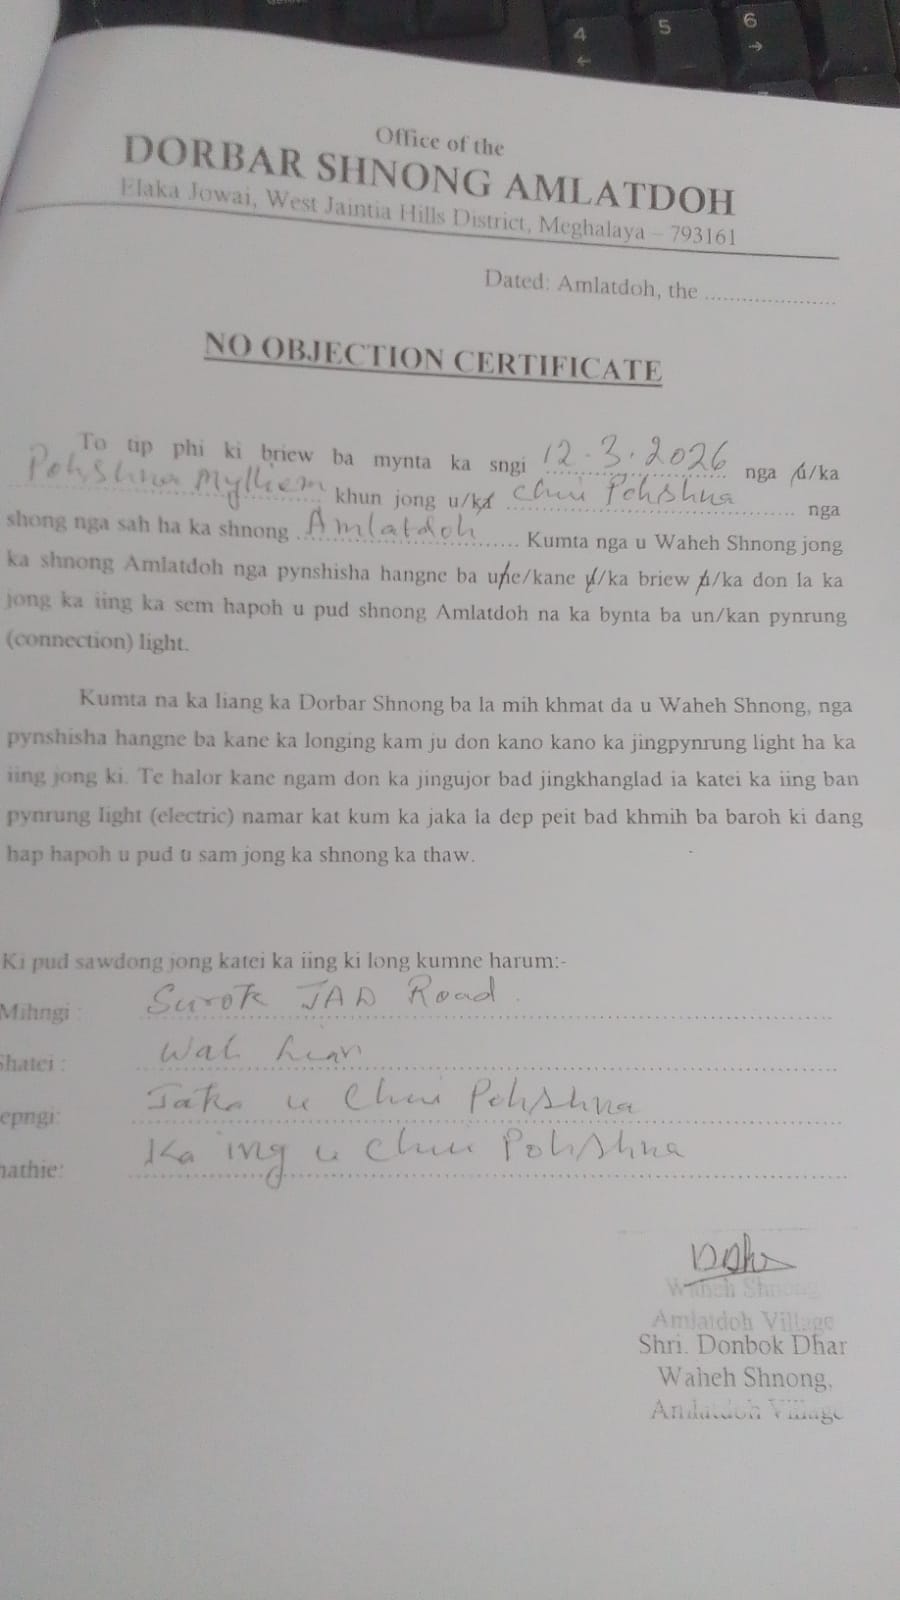 4 5 6
Office of the
DORBAR SHNONG AMLATDOH
Elaka Jowai, West Jaintia Hills District, Meghalaya – 793161
Dated: Amlatdoh, the ......................
NO OBJECTION CERTIFICATE
To tip phi ki briew ba mynta ka sngi 12.3.2026 nga u/ka
Pohshna Mylliem khun jong u/ka Chui Pohshna nga
shong nga sah ha ka shnong Amlatdoh Kumta nga u Waheh Shnong jong
ka shnong Amlatdoh nga pynshisha hangne ba une/kane u/ka briew u/ka don la ka
jong ka iing ka sem hapoh u pud shnong Amlatdoh na ka bynta ba un/kan pynrung
(connection) light.
Kumta na ka liang ka Dorbar Shnong ba la mih khmat da u Waheh Shnong, nga
pynshisha hangne ba kane ka longing kam ju don kano kano ka jingpynrung light ha ka
iing jong ki. Te halor kane ngam don ka jingujor bad jingkhanglad ia katei ka iing ban
pynrung light (electric) namar kat kum ka jaka la dep peit bad khmih ba baroh ki dang
hap hapoh u pud u sam jong ka shnong ka thaw.
Ki pud sawdong jong katei ka iing ki long kumne harum:-
Mihngi : Surok JAD Road
Shatei : Wah
epngi: Jaka u Chui Pohshna
hathie: Ka ing u Chui Pohshna
Waheh Shnong
Amlatdoh Village
Shri. Donbok Dhar
Waheh Shnong,
Amlatdoh Village